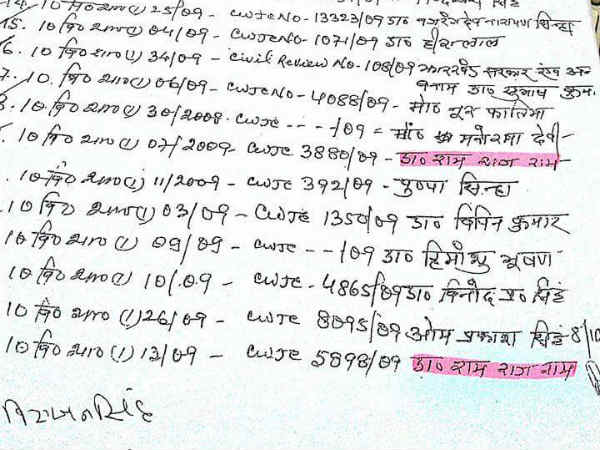 14. 10 वि० शा०(1) 25/09 - CWJC No - 13323/09 डा० नारायण सिन्हा
15. 10 वि० शा०(1) 04/09 - CWJC No - 1071/09 डा० हीरालाल
6. 10 वि० शा०(1) 34/09 - Civil Review No - 108/09 झारखंड सरकार एवं अ
7. 10. वि० शा०(1) 06/09 - CWJC No - 4088/09 - मो० नूर फातिमा
बनाम डा० सुभाष कुमा
10 वि० शा०(1) 30/2008. CWJC - - - /09 = मनोरमा देवी
10 वि० शा०(1) 07/2009 - CWJC 3880/09 - डा० राम राज राम
10 वि० शा०(1) 11/2009 - CWJC 392/09 - पुष्पा सिन्हा
10 वि० शा०(1) 03/09 - CWJC 1350/09 डा० विपिन कुमार
10 वि० शा०(1) 09/09 - CWJC - - - /09 डा० हिमांशु भूषण
10 वि० शा०(1) 10/09 - CWJC - 4865/09 डा० विनोद प्र० सिंह
10 वि० शा०(1) 26/09 - CWJC 8095/09 ओम प्रकाश सिंह - 8/10
10 वि० शा०(1) 13/09 - CWJC 5898/09 डा० राम राज राम